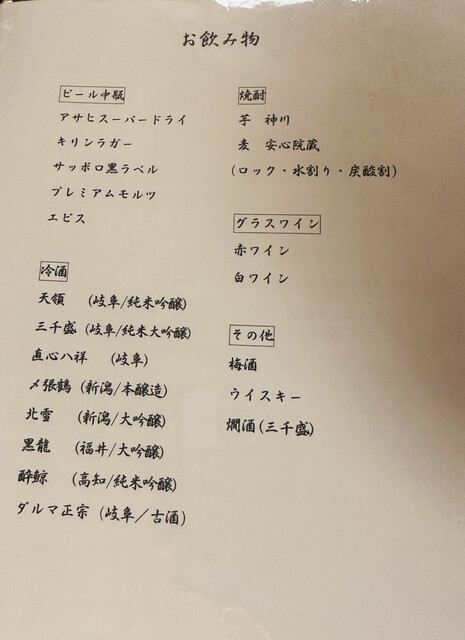 お飲み物
ビール中瓶
アサヒスーパードライ
キリンラガー
サッポロ黒ラベル
プレミアムモルツ
エビス
冷酒
天領 (岐阜/純米吟醸)
三千盛 (岐阜/純米大吟醸)
直心八祥 (岐阜)
〆張鶴 (新潟/本醸造)
北雪 (新潟/大吟醸)
黒龍 (福井/大吟醸)
酔鯨 (高知/純米吟醸)
ダルマ正宗 (岐阜/古酒)
焼酎
芋 神川
麦 安心院蔵
(ロック・水割り・炭酸割)
グラスワイン
赤ワイン
白ワイン
その他
梅酒
ウイスキー
燗酒(三千盛)